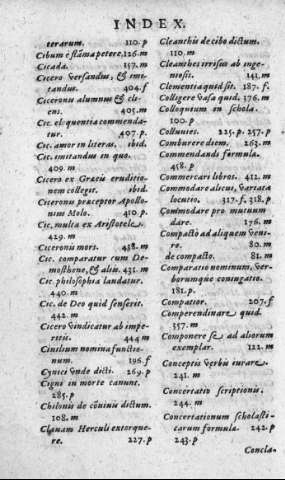 INDEX.
terarum. 110.p
Cibum è flāma petere. 126.m
Cicada. 157.m
Cicero versandus, & imi-
tandus. 404.f
Ciceronis alumnus & cli-
ens. 405.m
Cic. eloquentia commenda-
tur. 407.p
Cic. amor in literas. ibid.
Cic. imitandus in quo.
409.m
Cicero ex Græcis eruditio-
nem collegit. ibid.
Ciceronis præceptor Apollo-
nius Molo. 410.p
Cic. multa ex Aristotele.
429.m
Ciceronis mors. 438.m
Cic. comparatur cum De-
mosthene, & aliis. 431.m
Cic. philosophia laudatur.
440.m
Cic. de Deo quid senserit.
442.m
Cicero vindicatur ab impe-
ritis. 444.m
Ciuilium nomina functio-
num. 196.f
Cynici vnde dicti. 269.p
Cigni in morte canunt.
285.p
Chilonis de cōuiuiis dictum.
108.m
Clauam Herculi extorque-
re. 227.p
Cleanthis de cibo dictum.
110.m
Cleanthes irrisus ab inge-
niosis. 141.m
Clementia quid sit. 187.f.
Colligere vasa quid. 176.m
Colloquium in schola.
100.p
Colluuies. 225.p. 257.p
Comburere diem. 263.m
Commendandi formula.
458.p
Commercari libros. 412.m
Commodare alicui, variata
locutio. 317.f. 318.p
Commodare pro mutuum
dare. 176.m
Compactò ad aliquem veni-
re. 80.m
de compacto. 81.m
Comparatio nominum, ver-
borumque coniugatio.
181.p.
Compatior. 207.f
Comperendinare quid.
357.m
Componere se ad aliorum
exemplar. 122.m
Conceptis verbis iurare.
241.m
Concertatio scriptionis.
244.m
Concertationum scholasti-
carum formula. 242.p
243.p
Concla-